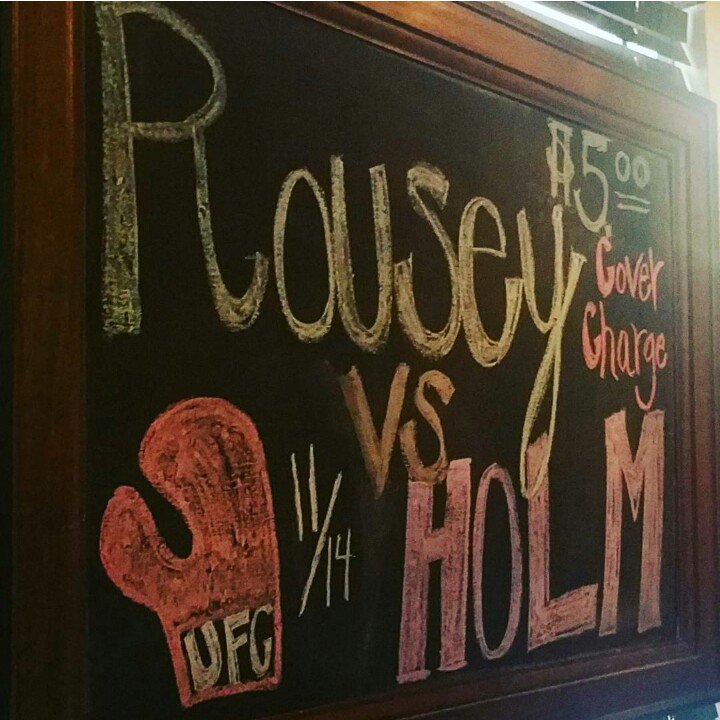 Rousey
$5.00
Cover
Charge
vs
HOLM
11/14
UFC